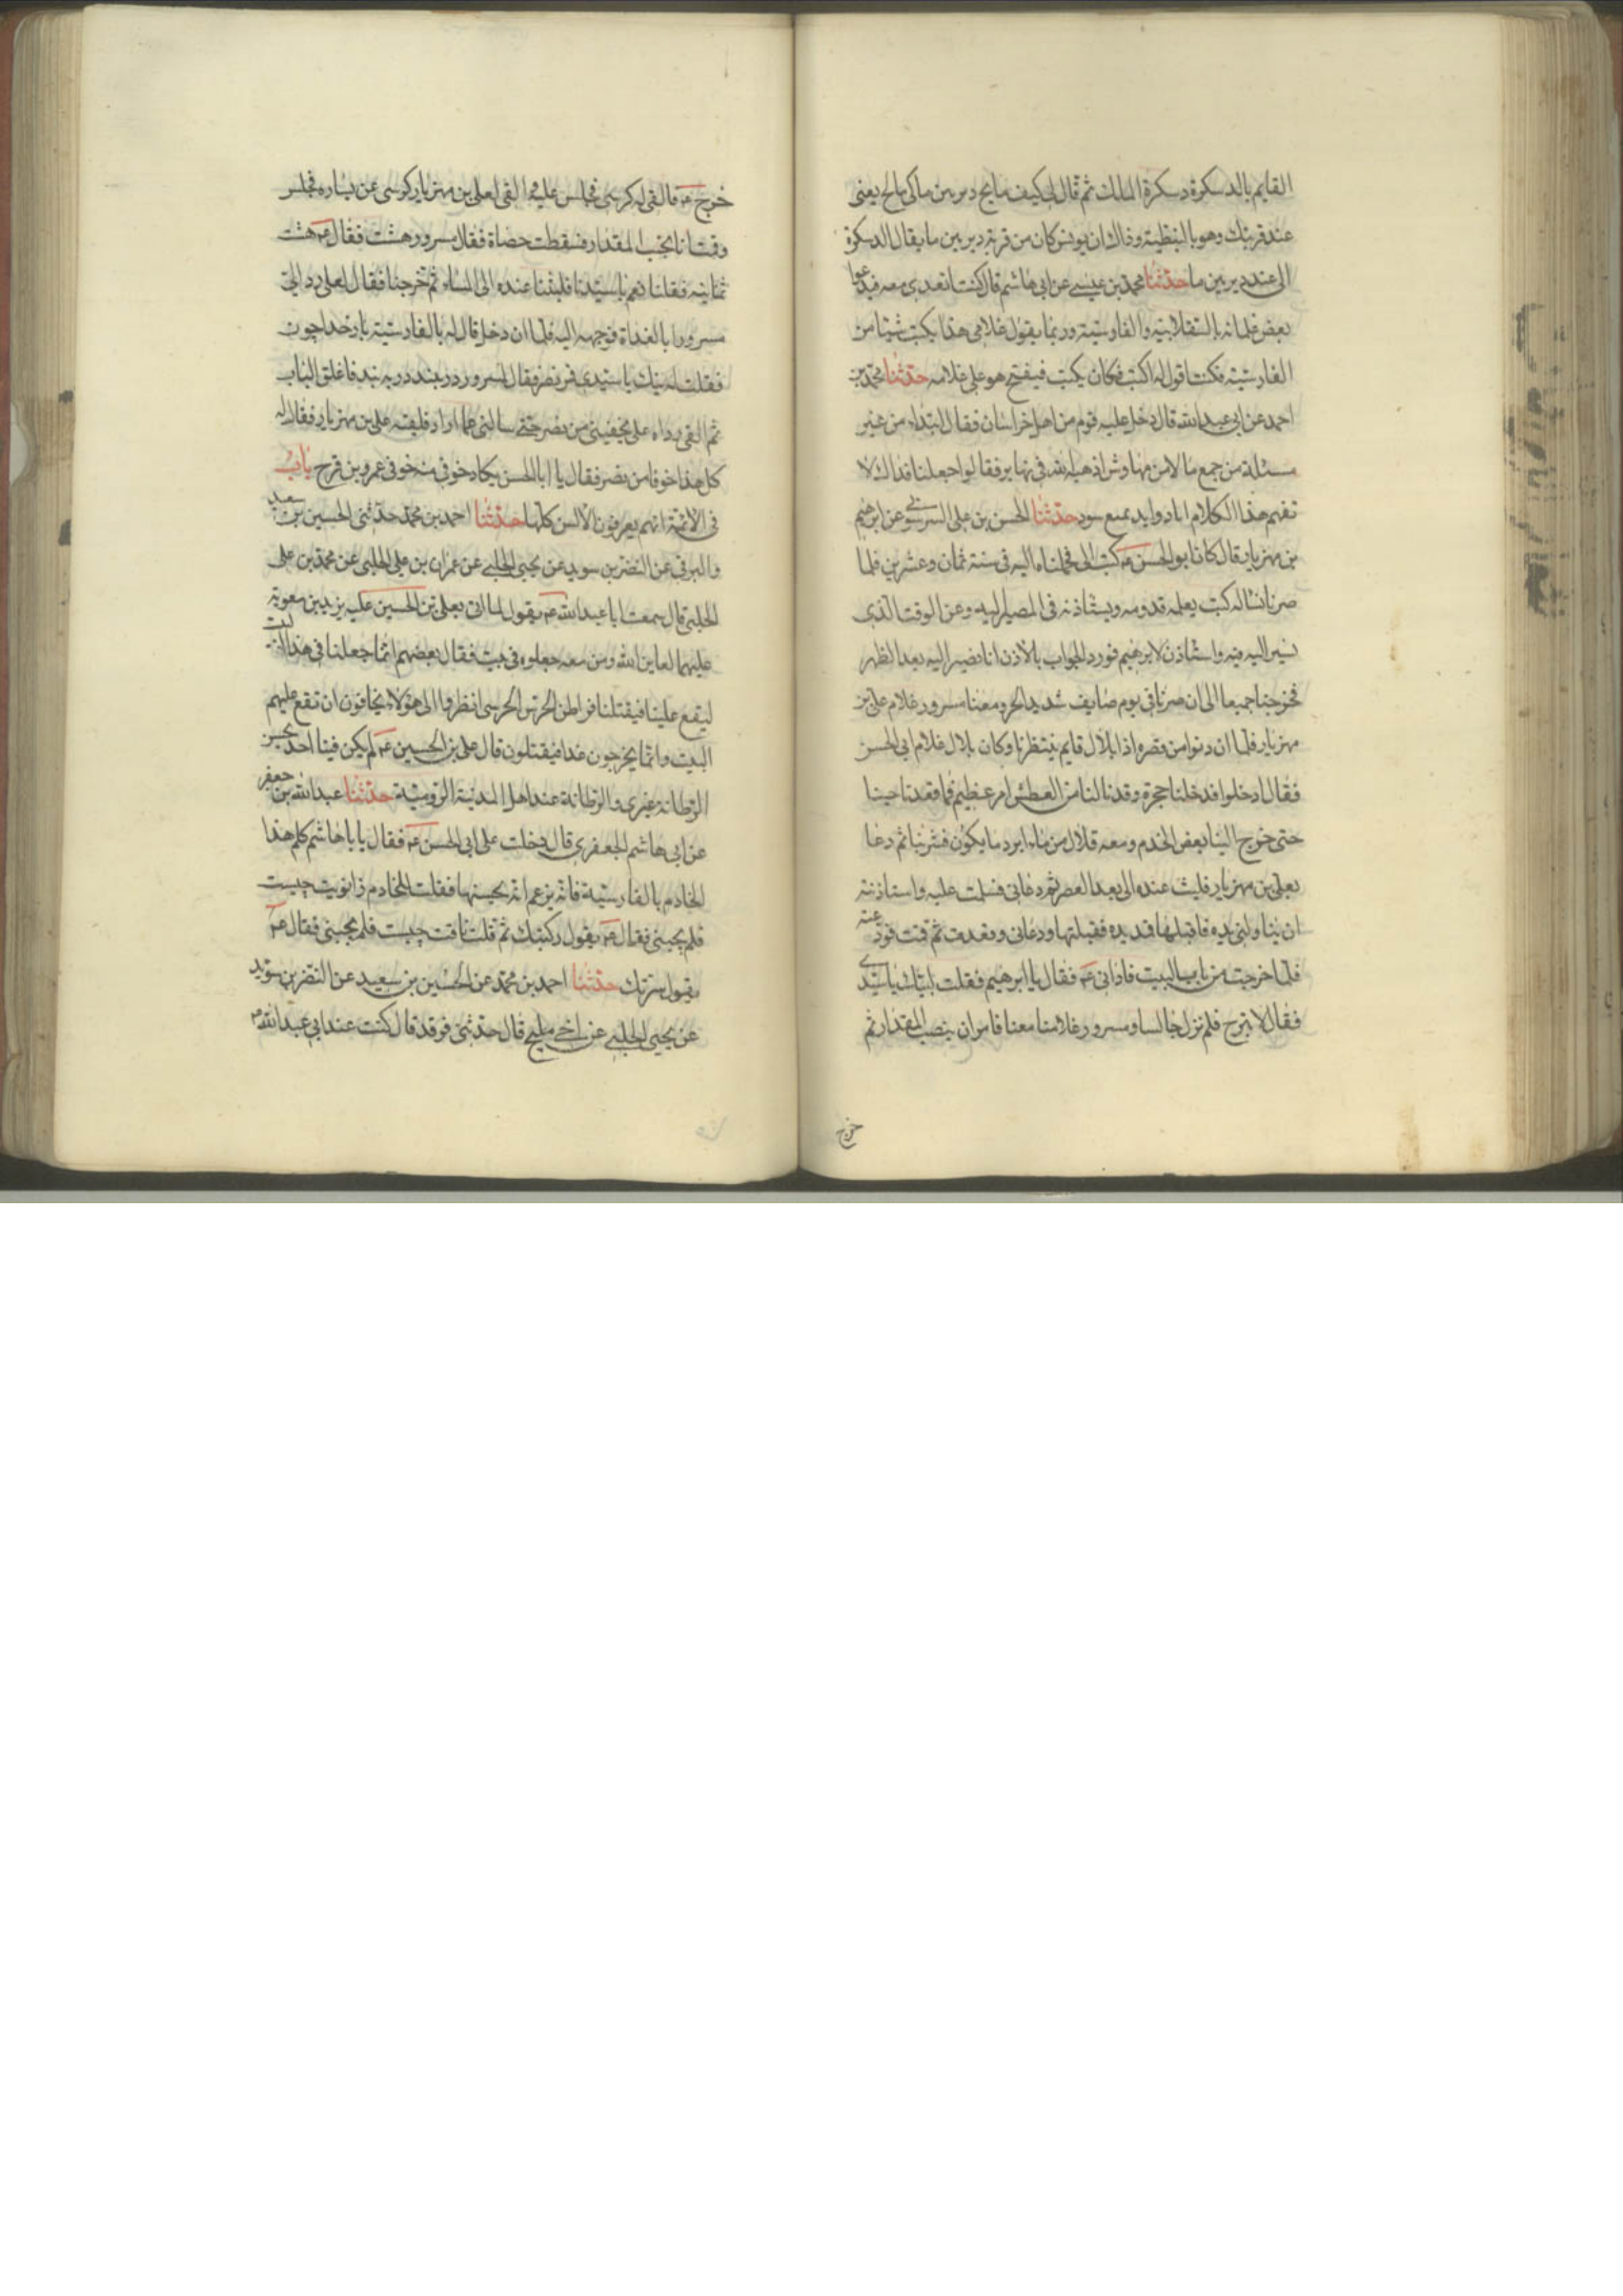 القايم بالدسكرة دسكرة الملك ثم قال لى كيف مايح دير بين ماكى مالح يعنى
عند قريتك وهو بالنبطية وذاك ان يونس كان من قرية دير بين ما يقال الدسكرة
اى عند دير بين ما حدثنا محمد بن عيسى عن ابى هاشم قال كنت اتغدى معه فيدعوا
بعض غلمانه بالسقلابية والفارسية وربما يقول غلامى هذا يكتب شيئا من
الفارسية فكنت اقول له اكتب فكان يكتب فيفتح هو على غلامه حدثنا محمد بن
احمد عن ابى عبدالله قال دخل عليه قوم من اهل خراسان فقال ابتداء من غير
مسئلة من جمع مالا من مهاوش اذهبه الله فى نهابر فقالوا جعلنا فداك لا
نفهم هذا الكلام از باد ايد بدم بشود حدثنا الحسن بن على السرسونى عن ابرهيم
بن مهزيار قال كان ابو الحسن ع كتب الى فحملناه اليه فى سنة ثمان وعشرين فلما
صرنا بسياله كتب يعلمه قدومه ويستاذنه فى المصير اليه وعن الوقت الذى
نسير اليه فيه واستاذن لابرهيم فورد الجواب بالاذن انا نصير اليه بعد الظهر
فخرجنا جميعا الى ان صرنا فى يوم صايف شديد الحر ومعنا مسرور غلام على بن
مهزيار فلما ان دنوا من قصره اذا بلال قايم ينتظرنا وكان بلال غلام ابى الحسن
فقال ادخلوا فدخلنا حجرة وقد نالنا من العطش امر عظيم فما قعدنا حينا
حتى خرج الينا بعض الخدم ومعه قلال من ماء ابرد ما يكون فشربنا ثم دعا
بعلى بن مهزيار فلبث عنده الى بعد العصر ثم دعانى فسلمت عليه واستاذنته
ان يناولنى يده فاقبلها فمد يده فقبلتها ودعانى وقعدت ثم قمت فودعته
فلما خرجت من باب البيت فنادانى ع فقال يا ابرهيم فقلت لبيك يا سيدى
فقال لا تبرح فلم نزل جالسا ومسرور غلامنا معنا فامر ان ينصب المقدار ثم
خرج
خرج ع فالقى له كرسى فجلس عليه والقى لعلى بن مهزيار كرسى عن يساره فجلس
وقمت انا بجنب المقدار فسقطت حصاة فقال مسرور هشت فقال ع هشت
ثمانية فقلنا نعم يا سيدنا فلبثنا عنده الى المساء ثم خرجنا فقال لعلى رد الى
مسرورا بالغداة فوجهه اليه فلما ان دخل قال له بالفارسية بار خدا چون
فقلت له نيك يا سيدى فمر نصر فقال لمسرور در ببند در ببند فاغلق الباب
ثم القى رداه على يخفينى من نصر حتى سالنى عما اراد فلقيه على بن مهزيار فقال له
كل هذا خوفا من نصر فقال يا ابا الحسن يكاد خوفى منه خوفى عمرو بن قرح باب
فى الائمة انهم يعرفون الالسن كلها حدثنا احمد بن محمد حدثنى الحسين بن سعيد
والبرقى عن النضر بن سويد عن يحيى الحلبى عن عمران بن على الحلبى عن محمد بن على
الحلبى قال سمعت ابا عبدالله ع يقول لما اتى بعلى بن الحسين ع يزيد بن معوية
عليهما لعاين الله ومن معه جعلوه فى بيت فقال بعضهم انما جعلنا فى هذا البيت
ليقع علينا فيقتلنا فراطن الحرس الحرسى انظروا الى هؤلاء يخافون ان تقع عليهم
البيت وانما يخرجون غدا فيقتلون قال على بن الحسين ع لم يكن فينا احد يحسن
الرطانة غيرى والرطانة عند اهل المدينة الرومية حدثنا عبدالله بن جعفر
عن ابى هاشم الجعفرى قال دخلت على ابى الحسن ع فقال يا با هاشم كلم هذا
الخادم بالفارسية فانه يزعم انه يحسنها فقلت للخادم زانويت چيست
فلم يجبنى فقال ع يقول ركبتك ثم قلت نافت چيست فلم يجبنى فقال ع
يقول سرتك حدثنا احمد بن محمد عن الحسين بن سعيد عن النضر بن سويد
عن يحيى الحلبى عن اخى مليح قال حدثنى فرقد قال كنت عند ابى عبدالله ع